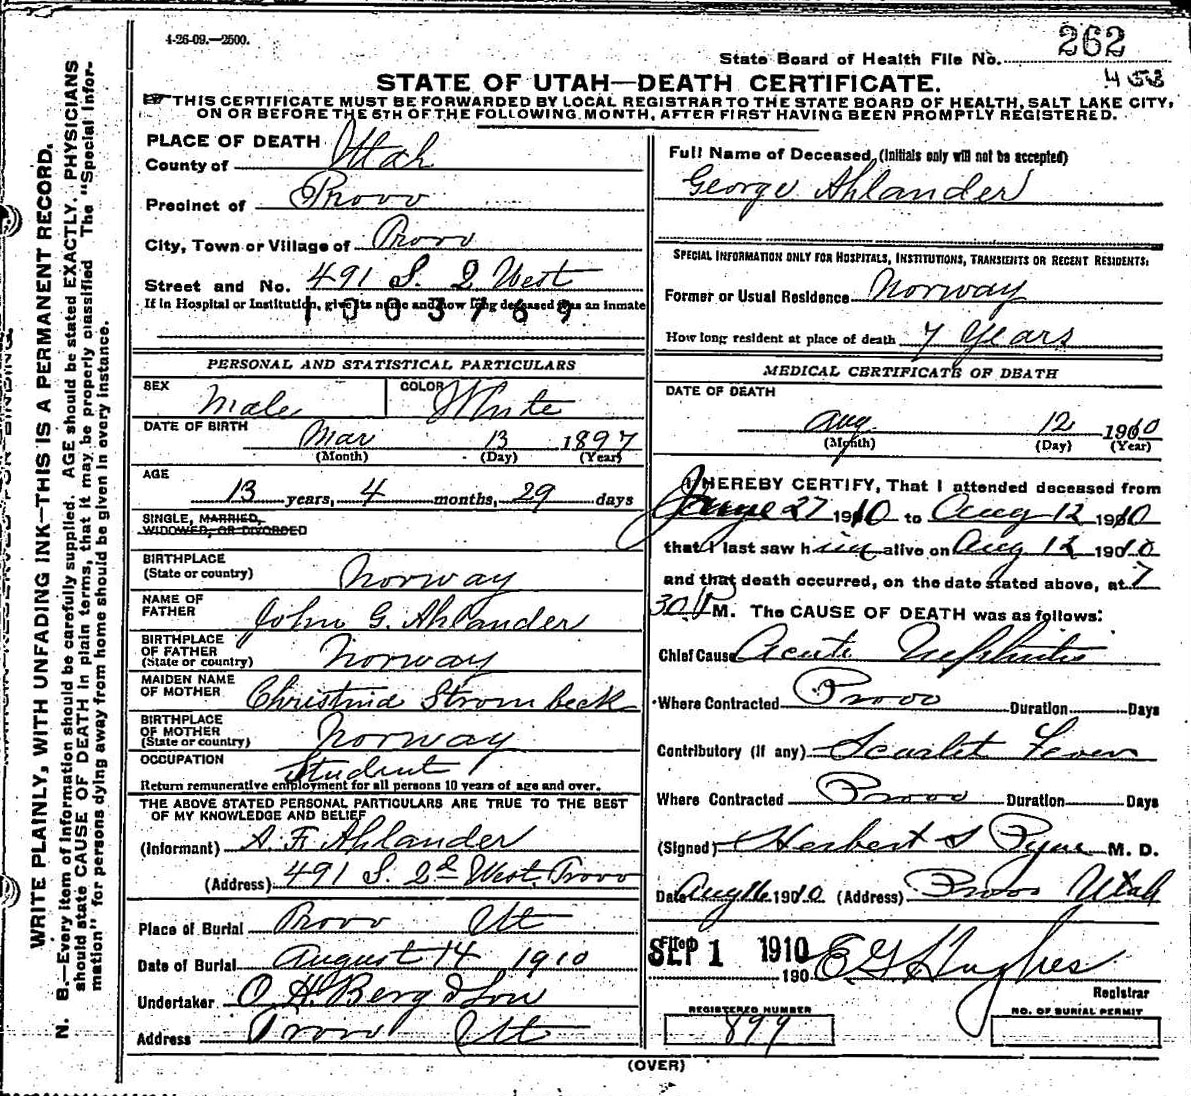 4-26-09.—2500.
State Board of Health File No. 262
STATE OF UTAH—DEATH CERTIFICATE.
THIS CERTIFICATE MUST BE FORWARDED BY LOCAL REGISTRAR TO THE STATE BOARD OF HEALTH, SALT LAKE CITY,
ON OR BEFORE THE 5TH OF THE FOLLOWING MONTH, AFTER FIRST HAVING BEEN PROMPTLY REGISTERED.
WRITE PLAINLY, WITH UNFADING INK—THIS IS A PERMANENT RECORD.
N. B.—Every item of information should be carefully supplied. AGE should be stated EXACTLY. PHYSICIANS
should state CAUSE OF DEATH in plain terms, that it may be properly classified The "Special Infor-
mation" for persons dying away from home should be given in every instance.
PLACE OF DEATH
County of Utah
Precinct of Provo
City, Town or Village of Provo
Street and No. 491 S. 2 West
If in Hospital or Institution, give its name and how long deceased was an inmate
1003769
PERSONAL AND STATISTICAL PARTICULARS
SEX Male COLOR White
DATE OF BIRTH Mar 13 1897
(Month) (Day) (Year)
AGE
13 years, 4 months, 29 days
SINGLE, MARRIED,
WIDOWED, OR DIVORCED
BIRTHPLACE
(State or country) Norway
NAME OF
FATHER John G. Ahlander
BIRTHPLACE
OF FATHER
(State or country) Norway
MAIDEN NAME
OF MOTHER Christina Strombeck
BIRTHPLACE
OF MOTHER
(State or country) Norway
OCCUPATION Student
Return remunerative employment for all persons 10 years of age and over.
THE ABOVE STATED PERSONAL PARTICULARS ARE TRUE TO THE BEST
OF MY KNOWLEDGE AND BELIEF
(Informant) A. F. Ahlander
(Address) 491 S. 2d West. Provo
Place of Burial Provo Ut
Date of Burial August 14 1910
Undertaker O. H. Berg & Son
Address Provo Ut
Full Name of Deceased (Initials only will not be accepted)
George Ahlander
SPECIAL INFORMATION ONLY FOR HOSPITALS, INSTITUTIONS, TRANSIENTS OR RECENT RESIDENTS:
Former or Usual Residence Norway
How long resident at place of death 7 Years
MEDICAL CERTIFICATE OF DEATH
DATE OF DEATH
Aug 12 1910
(Month) (Day) (Year)
I HEREBY CERTIFY, That I attended deceased from
27 1910 to Aug 12 1910
that I last saw him alive on Aug 12 1910
and that death occurred, on the date stated above, at 7
30 P M. The CAUSE OF DEATH was as follows:
Chief Cause Acute Nephritis
Where Contracted Provo Duration Days
Contributory (if any) Scarlet Fever
Where Contracted Provo Duration Days
(Signed) Herbert S Pyne M. D.
Date Aug 16 1910 (Address) Provo Utah
Filed SEP 1 1910
190 E G Hughes
Registrar
REGISTERED NUMBER
899
NO. OF BURIAL PERMIT
(OVER)